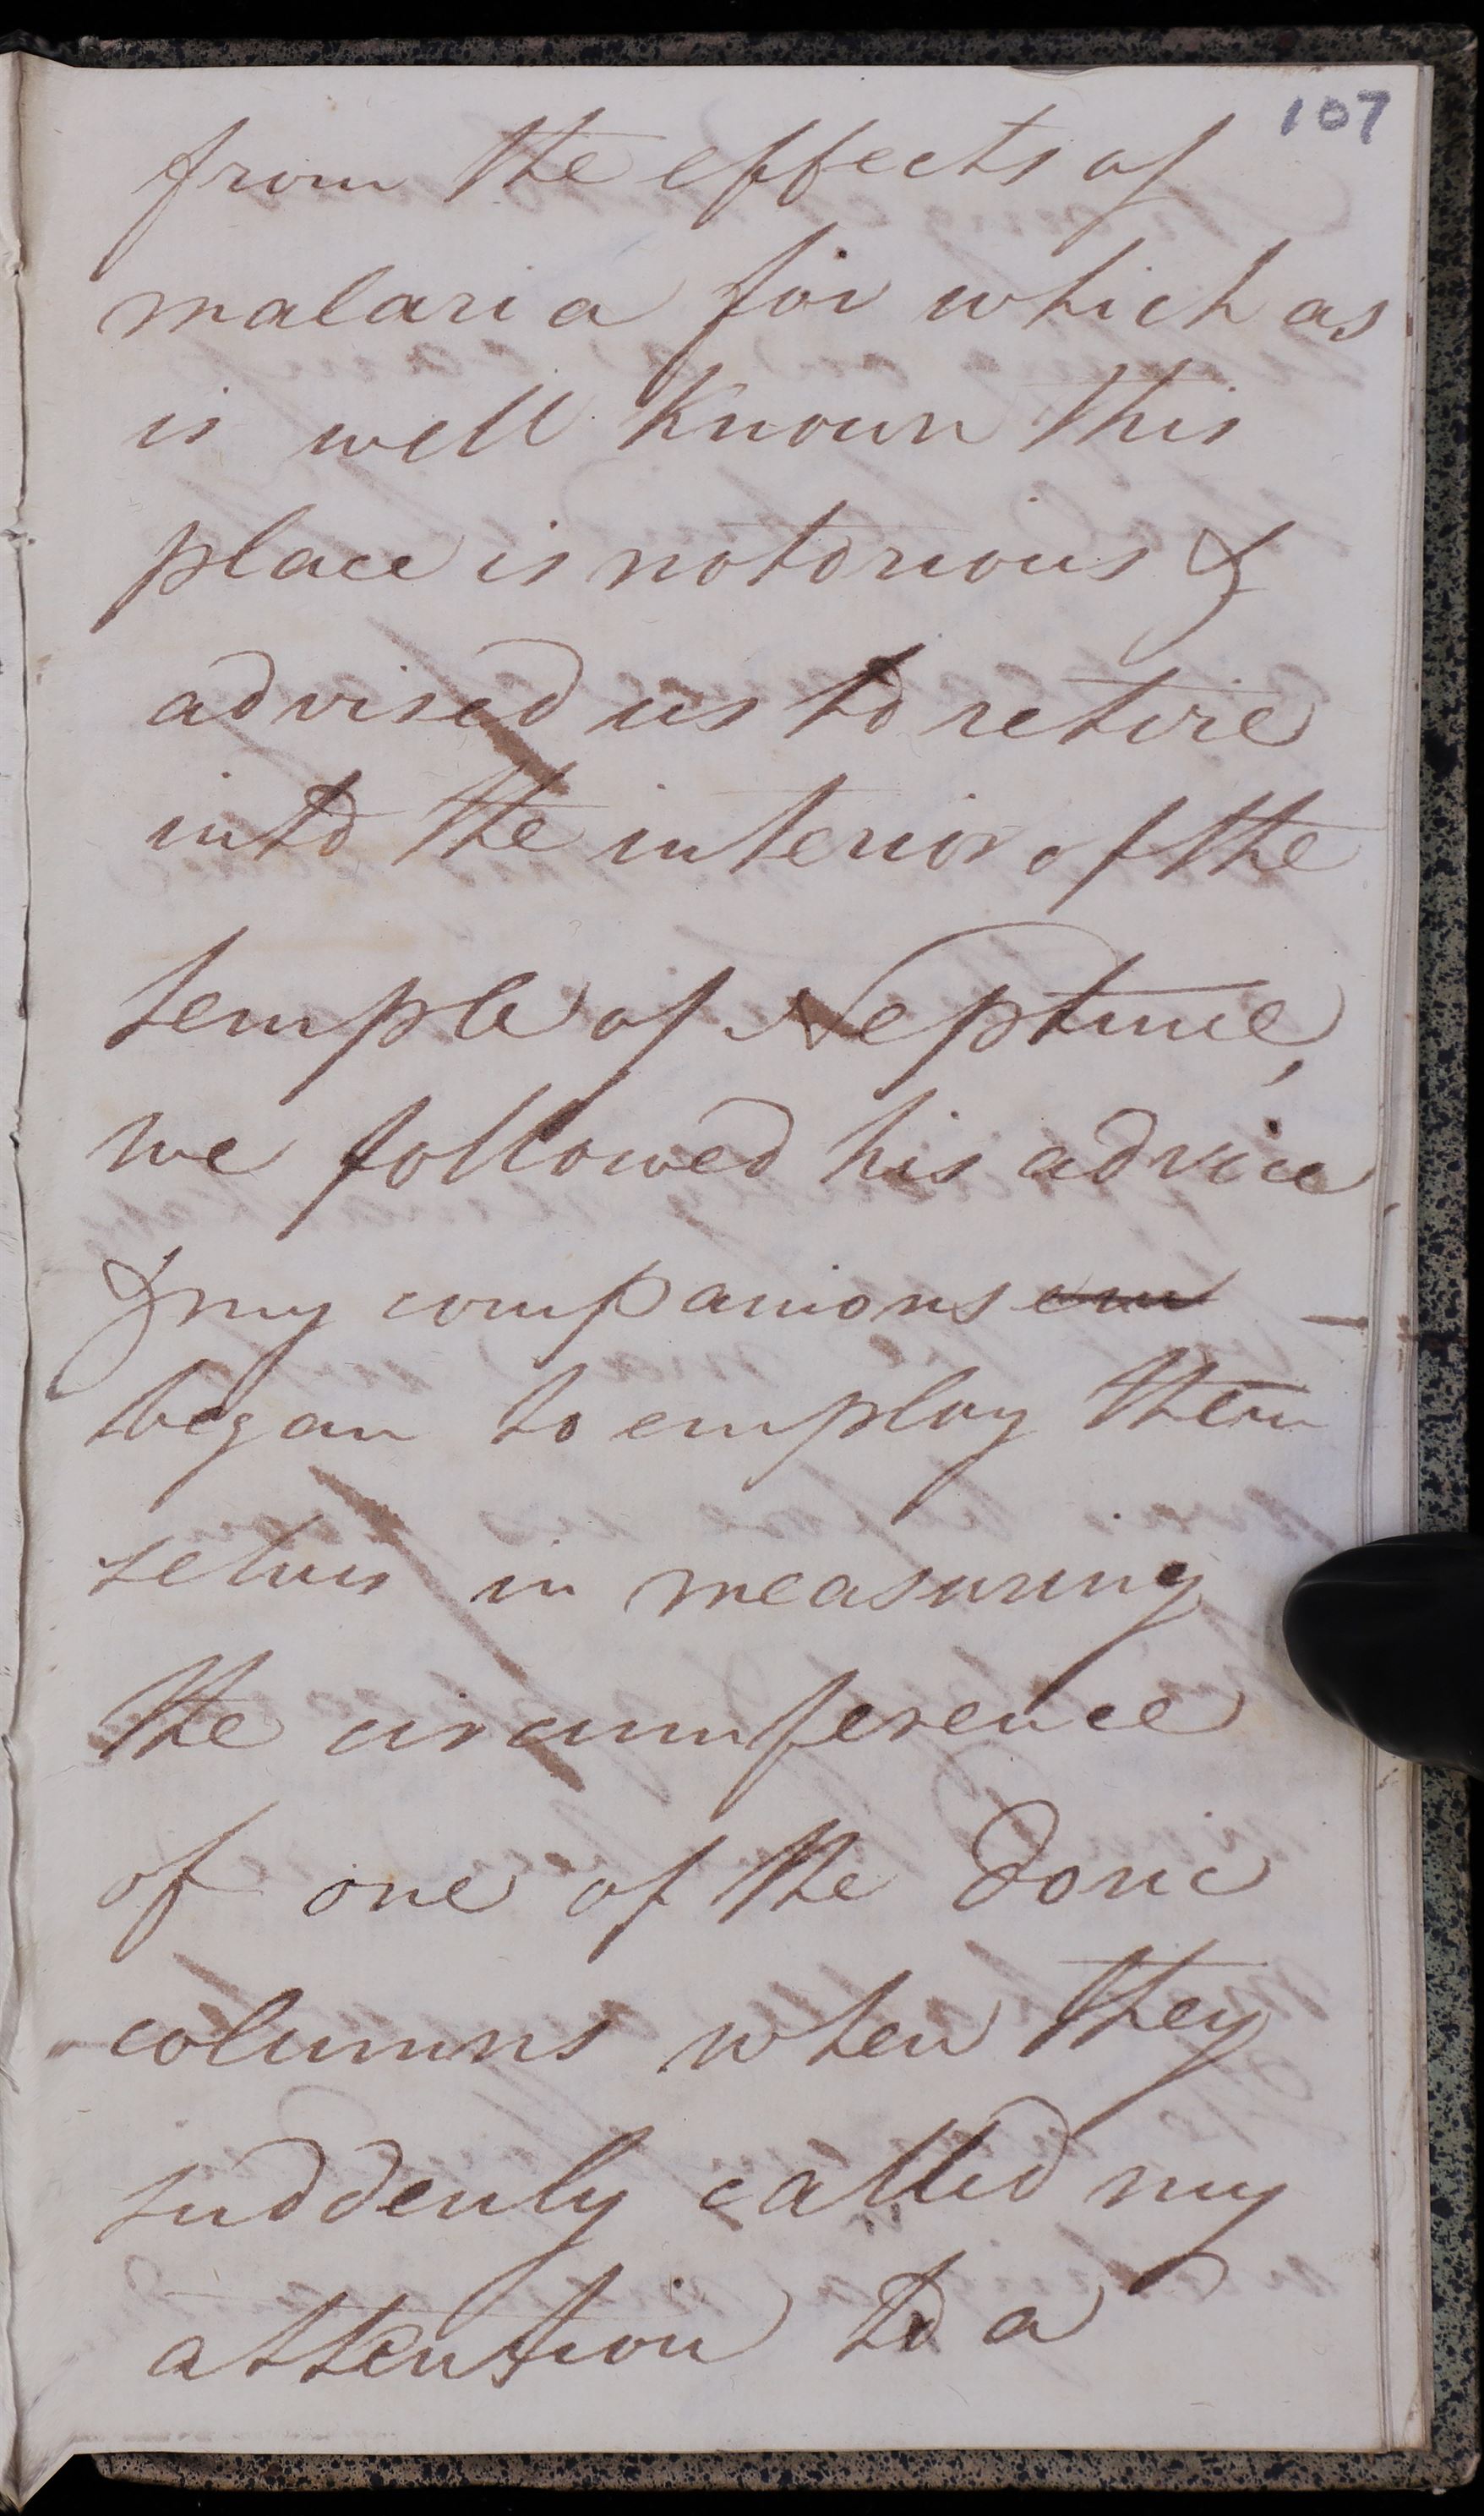 107
from the effects of
malaria for which as
is well known this
place is notorious &
advised us to retire
into the interior of the
temple of Neptune,
we followed his advice
& my companions
began to employ them
selves in measuring
the circumference
of one of the Doric
columns when they
suddenly called my
attention to a